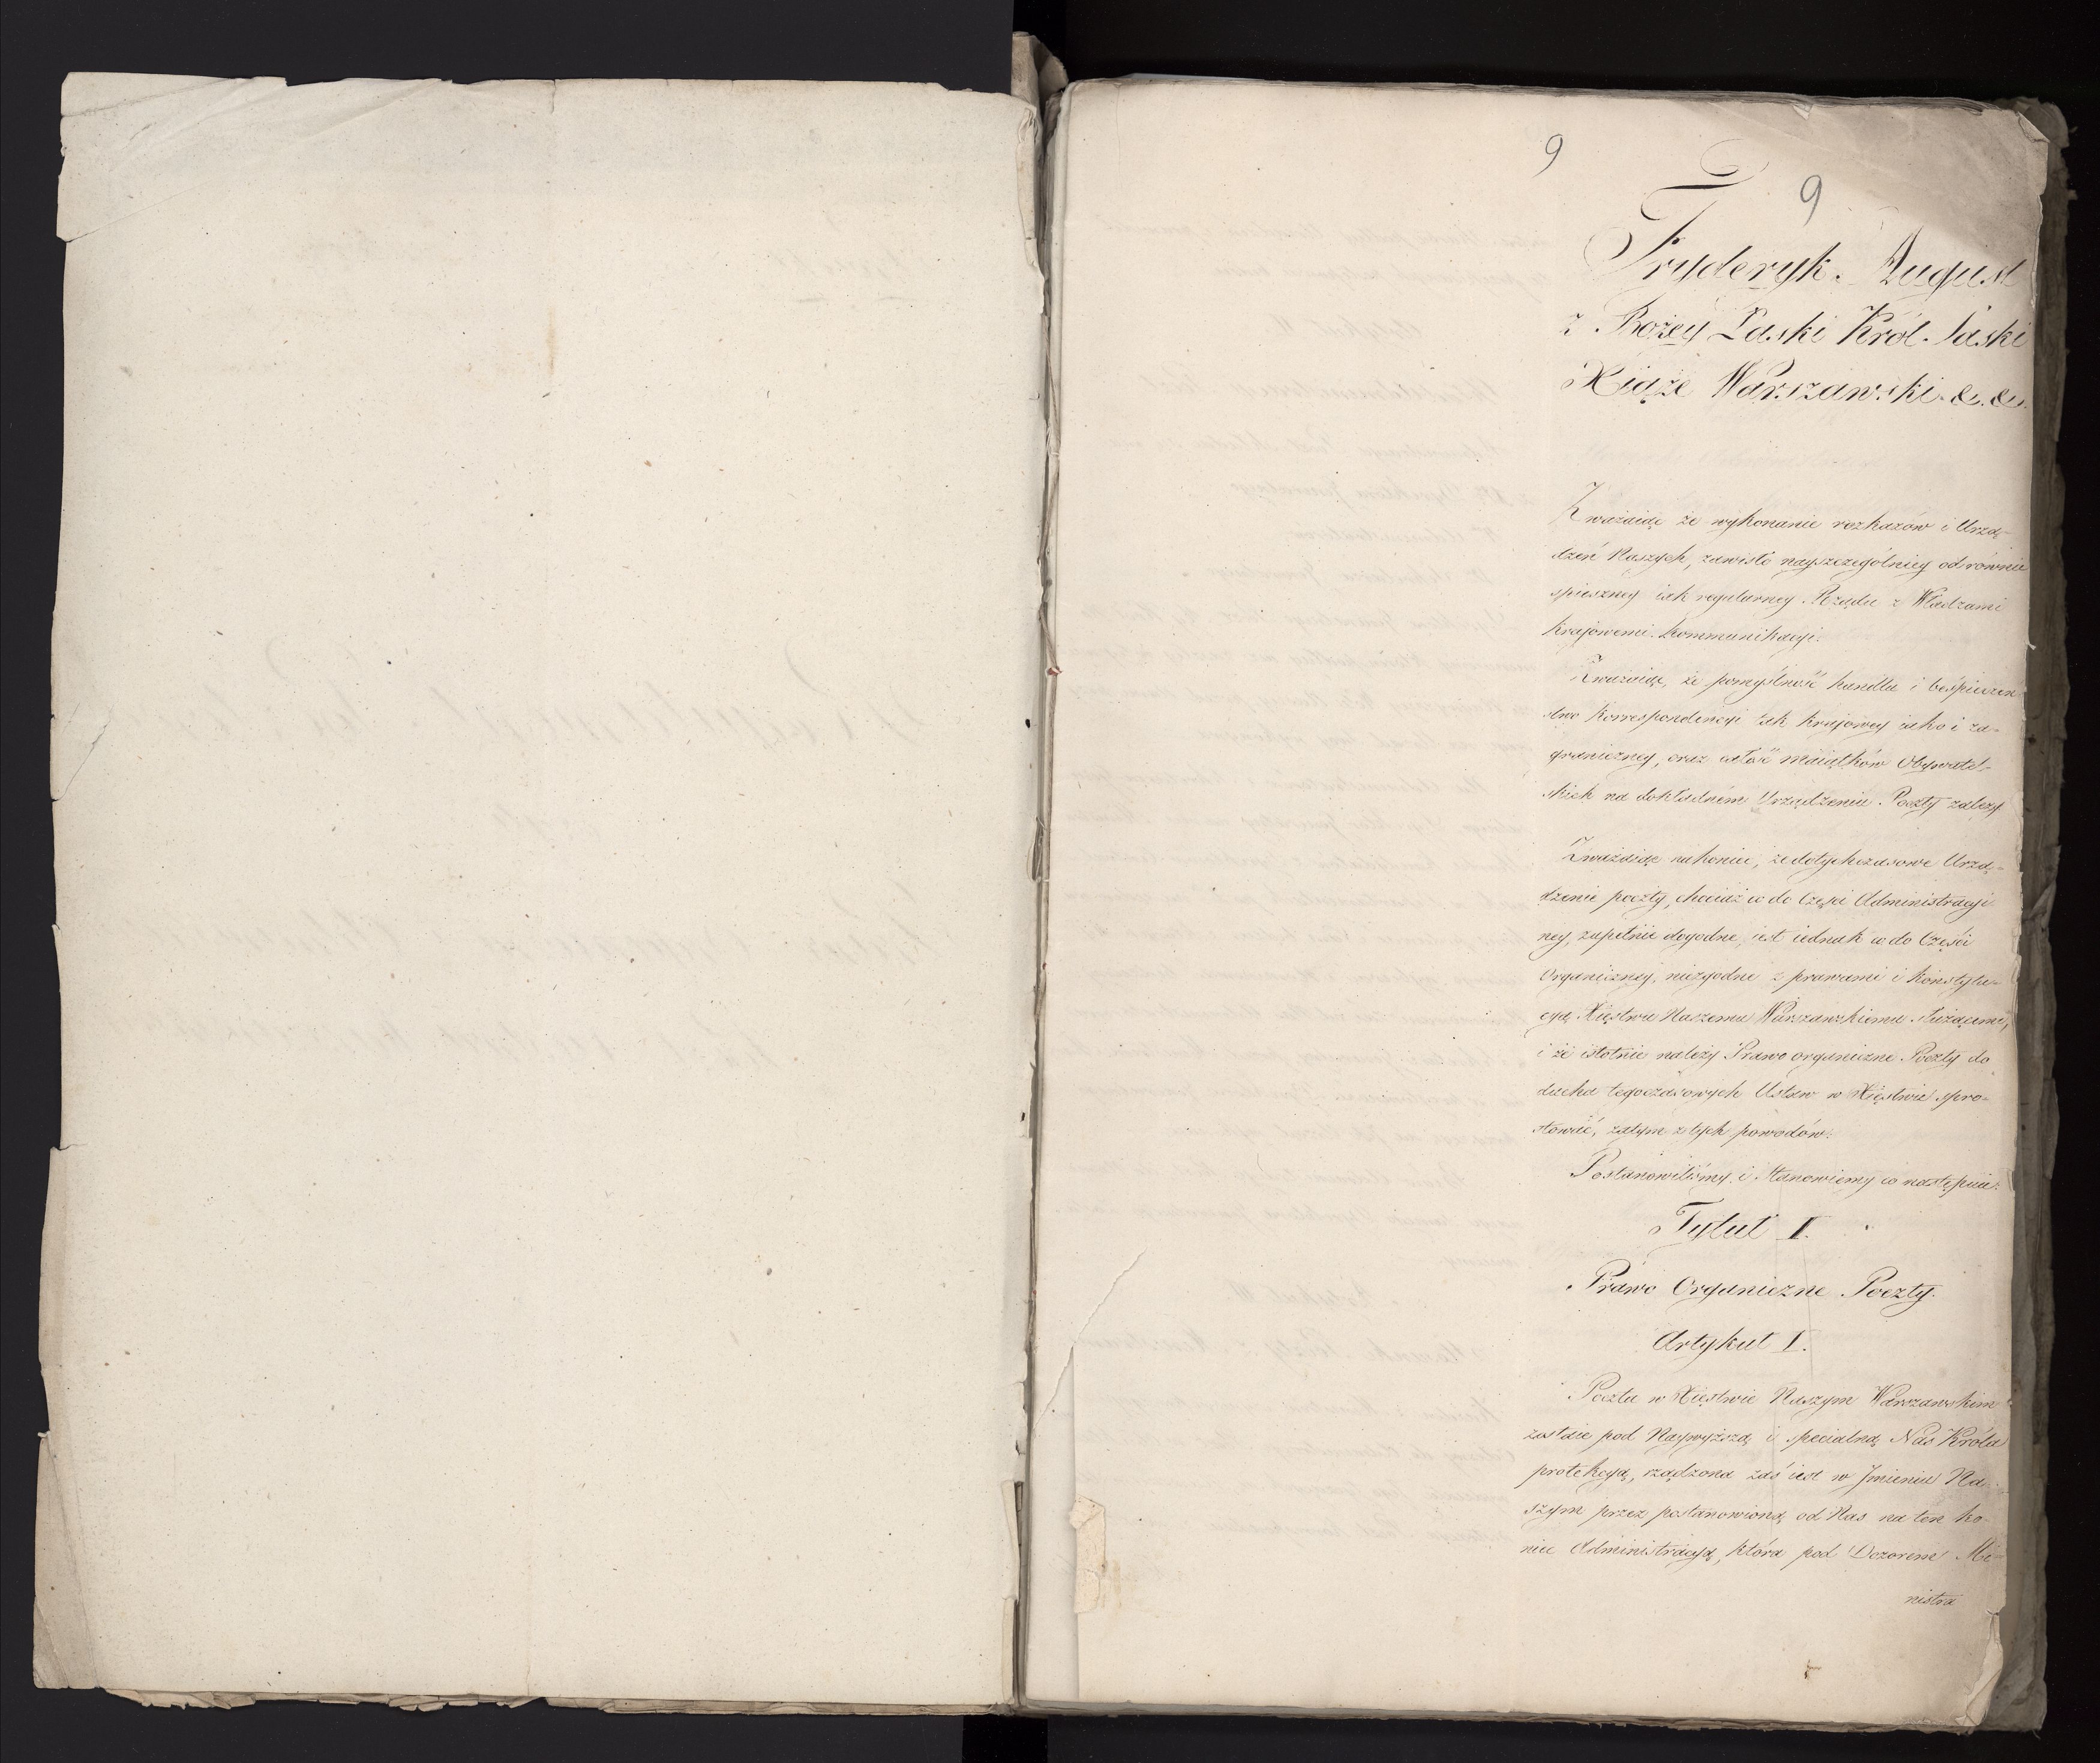 9
9
Fryderyk August
z Bożey Łaski Król Saski
Xiąże Warszawski &. &.
Zważaiąc że wykonanie rozkazów i Urzą-
dzeń Naszych, zawisło nayszczególniey od równie
spieszney iak regularney Rządu z Władzami
Krajowemi kommunikacyi.
Zważaiąc, że pomyślność handlu i bespieczeń
stwo korrespondencyi tak krajowey iako i za-
graniczney, oraz całość maiątków Obywatel-
skich na dokładném Urządzeniu Poczty zależy.
Zważaiąc nakoniec, że dotychczasowe Urzą-
dzenie poczty, chociaż co do Części Administracyi-
ney, zupełnie dogodne, iest iednak co do Części
Organiczney, niezgodne z prawami i Konstytu-
cyą Xięstwu Naszemu Warszawskiemu służącemi,
i że istotnie należy Prawo organiczne Poczty do
ducha tegoczasowych Ustaw w Xięstwie spro-
stować, zatym z tych powodów.
Postanowiliśmy i Stanowiemy co następuie:
Tytuł I.
Prawo Organiczne Poczty.
Artykuł I.
Poczta w Xięstwie Naszym Warszawskim
zostaie pod Naywyższą i specialną Nas Króla
protekcyą, rządzona zaś iest w Jmieniu Na-
szym przez postanowioną od Nas na ten ko-
niec Administracyą, która pod Dozorem Mi-
nistra